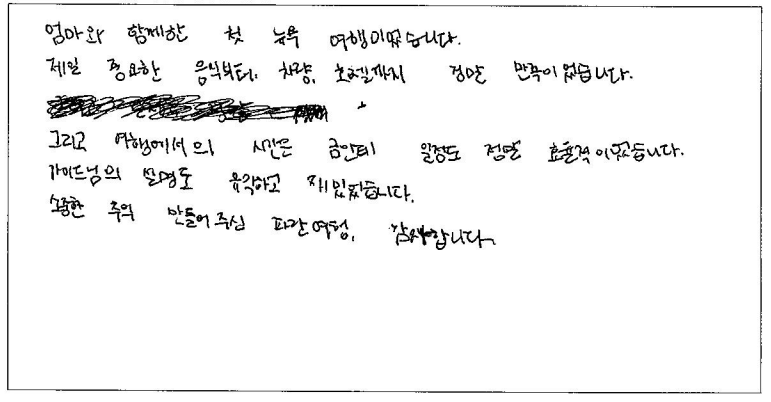 엄마와 함께한 첫 뉴욕 여행이었습니다.
제일 중요한 음식부터, 차량, 호텔까지 정말 만족이었습니다.
그리고 여행에서의 시간은 금인데 일정도 정말 효율적이었습니다.
가이드님의 설명도 유익하고 재미있었습니다.
소중한 추억 만들어주신 파란여행, 감사합니다